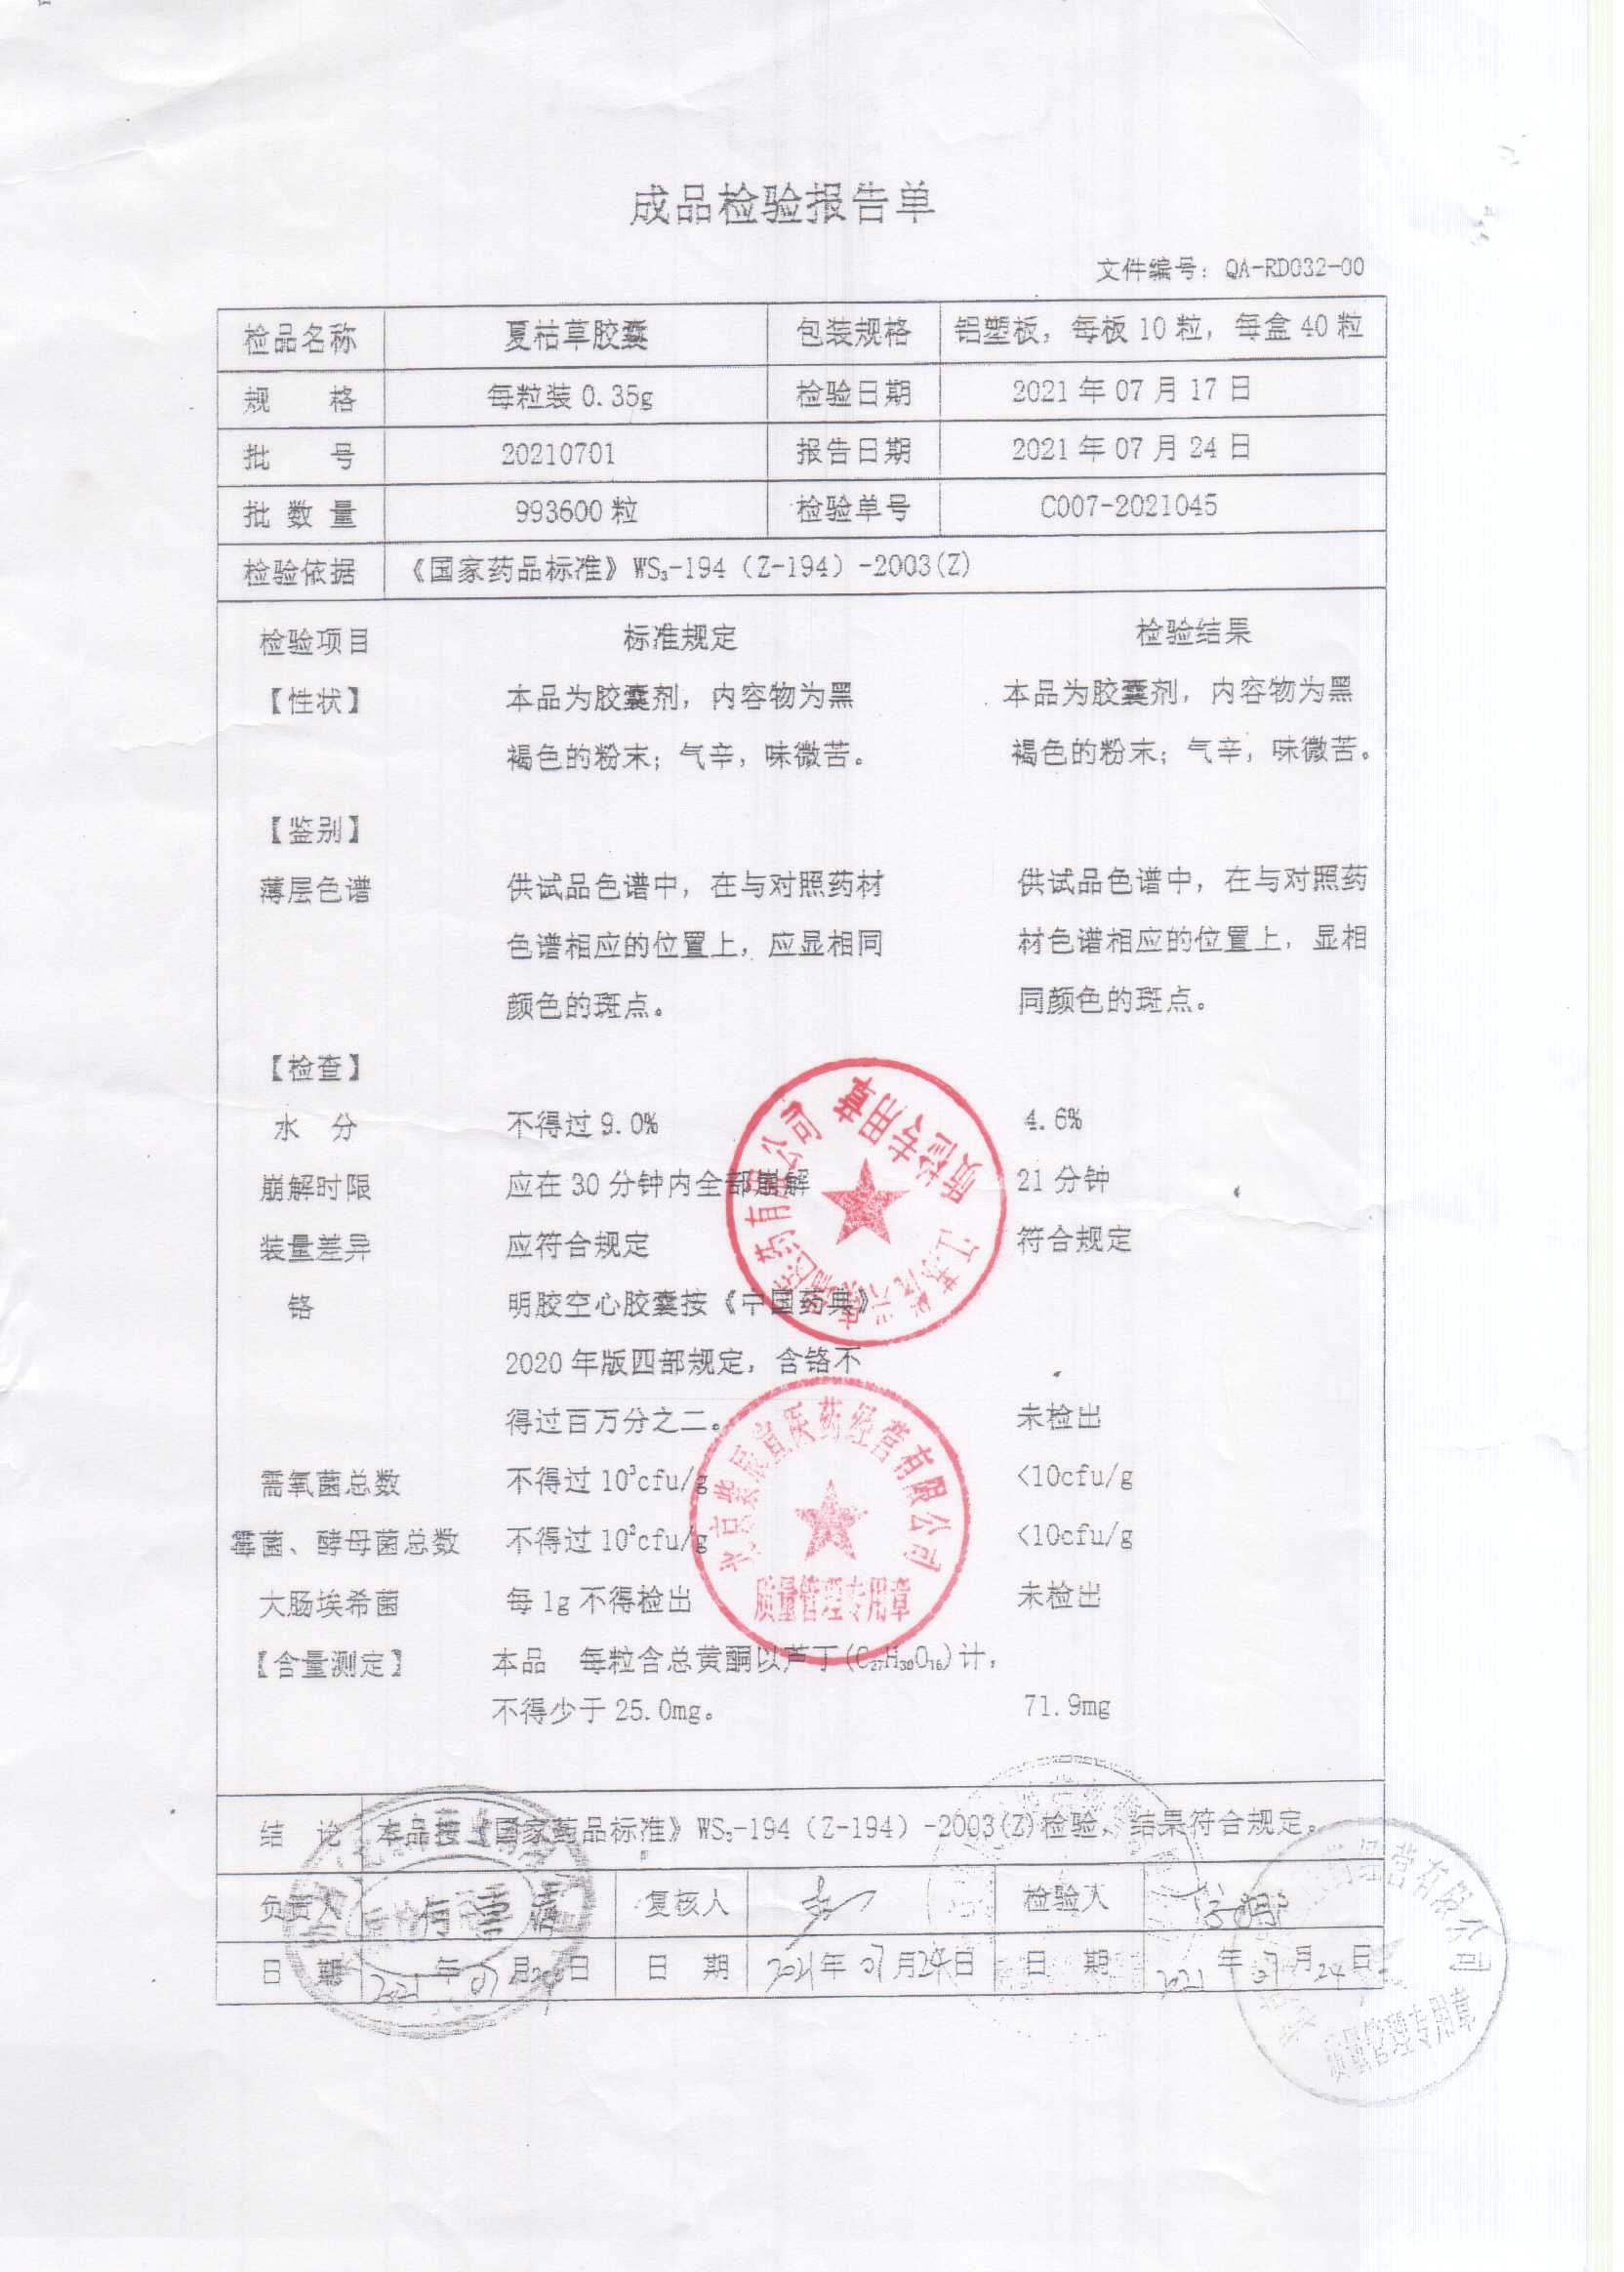 成品检验报告单
文件编号：QA-RD032-00
检品名称 夏枯草胶囊 包装规格 铝塑板，每板10粒，每盒40粒
规 格 每粒装0.35g 检验日期 2021年07月17日
批 号 20210701 报告日期 2021年07月24日
批 数 量 993600粒 检验单号 C007-2021045
检验依据 《国家药品标准》WS₃-194（Z-194）-2003(Z)
检验项目 标准规定 检验结果
【性状】 本品为胶囊剂，内容物为黑 本品为胶囊剂，内容物为黑
褐色的粉末；气辛，味微苦。 褐色的粉末；气辛，味微苦。
【鉴别】
薄层色谱 供试品色谱中，在与对照药材 供试品色谱中，在与对照药
色谱相应的位置上，应显相同 材色谱相应的位置上，显相
颜色的斑点。 同颜色的斑点。
【检查】
水 分 不得过9.0% 4.6%
崩解时限 应在30分钟内全部崩解 21分钟
装量差异 应符合规定 符合规定
铬 明胶空心胶囊按《中国药典》
2020年版四部规定，含铬不
得过百万分之二。 未检出
需氧菌总数 不得过10³cfu/g <10cfu/g
霉菌、酵母菌总数 不得过10²cfu/g <10cfu/g
大肠埃希菌 每1g不得检出 未检出
【含量测定】 本品 每粒含总黄酮以芦丁(C₂₇H₃₀O₁₆)计，
不得少于25.0mg。 71.9mg
医药有限公司
质检专用章
医药经营有限公司
质量管理专用章
结 论 本品按《国家药品标准》WS₃-194（Z-194）-2003(Z)检验，结果符合规定。
负责人 复核人 检验人
日 期 2021年07月 日 日 期 2021年07月24日 日 期 2021年07月24日
经营有限公司
质量管理专用章